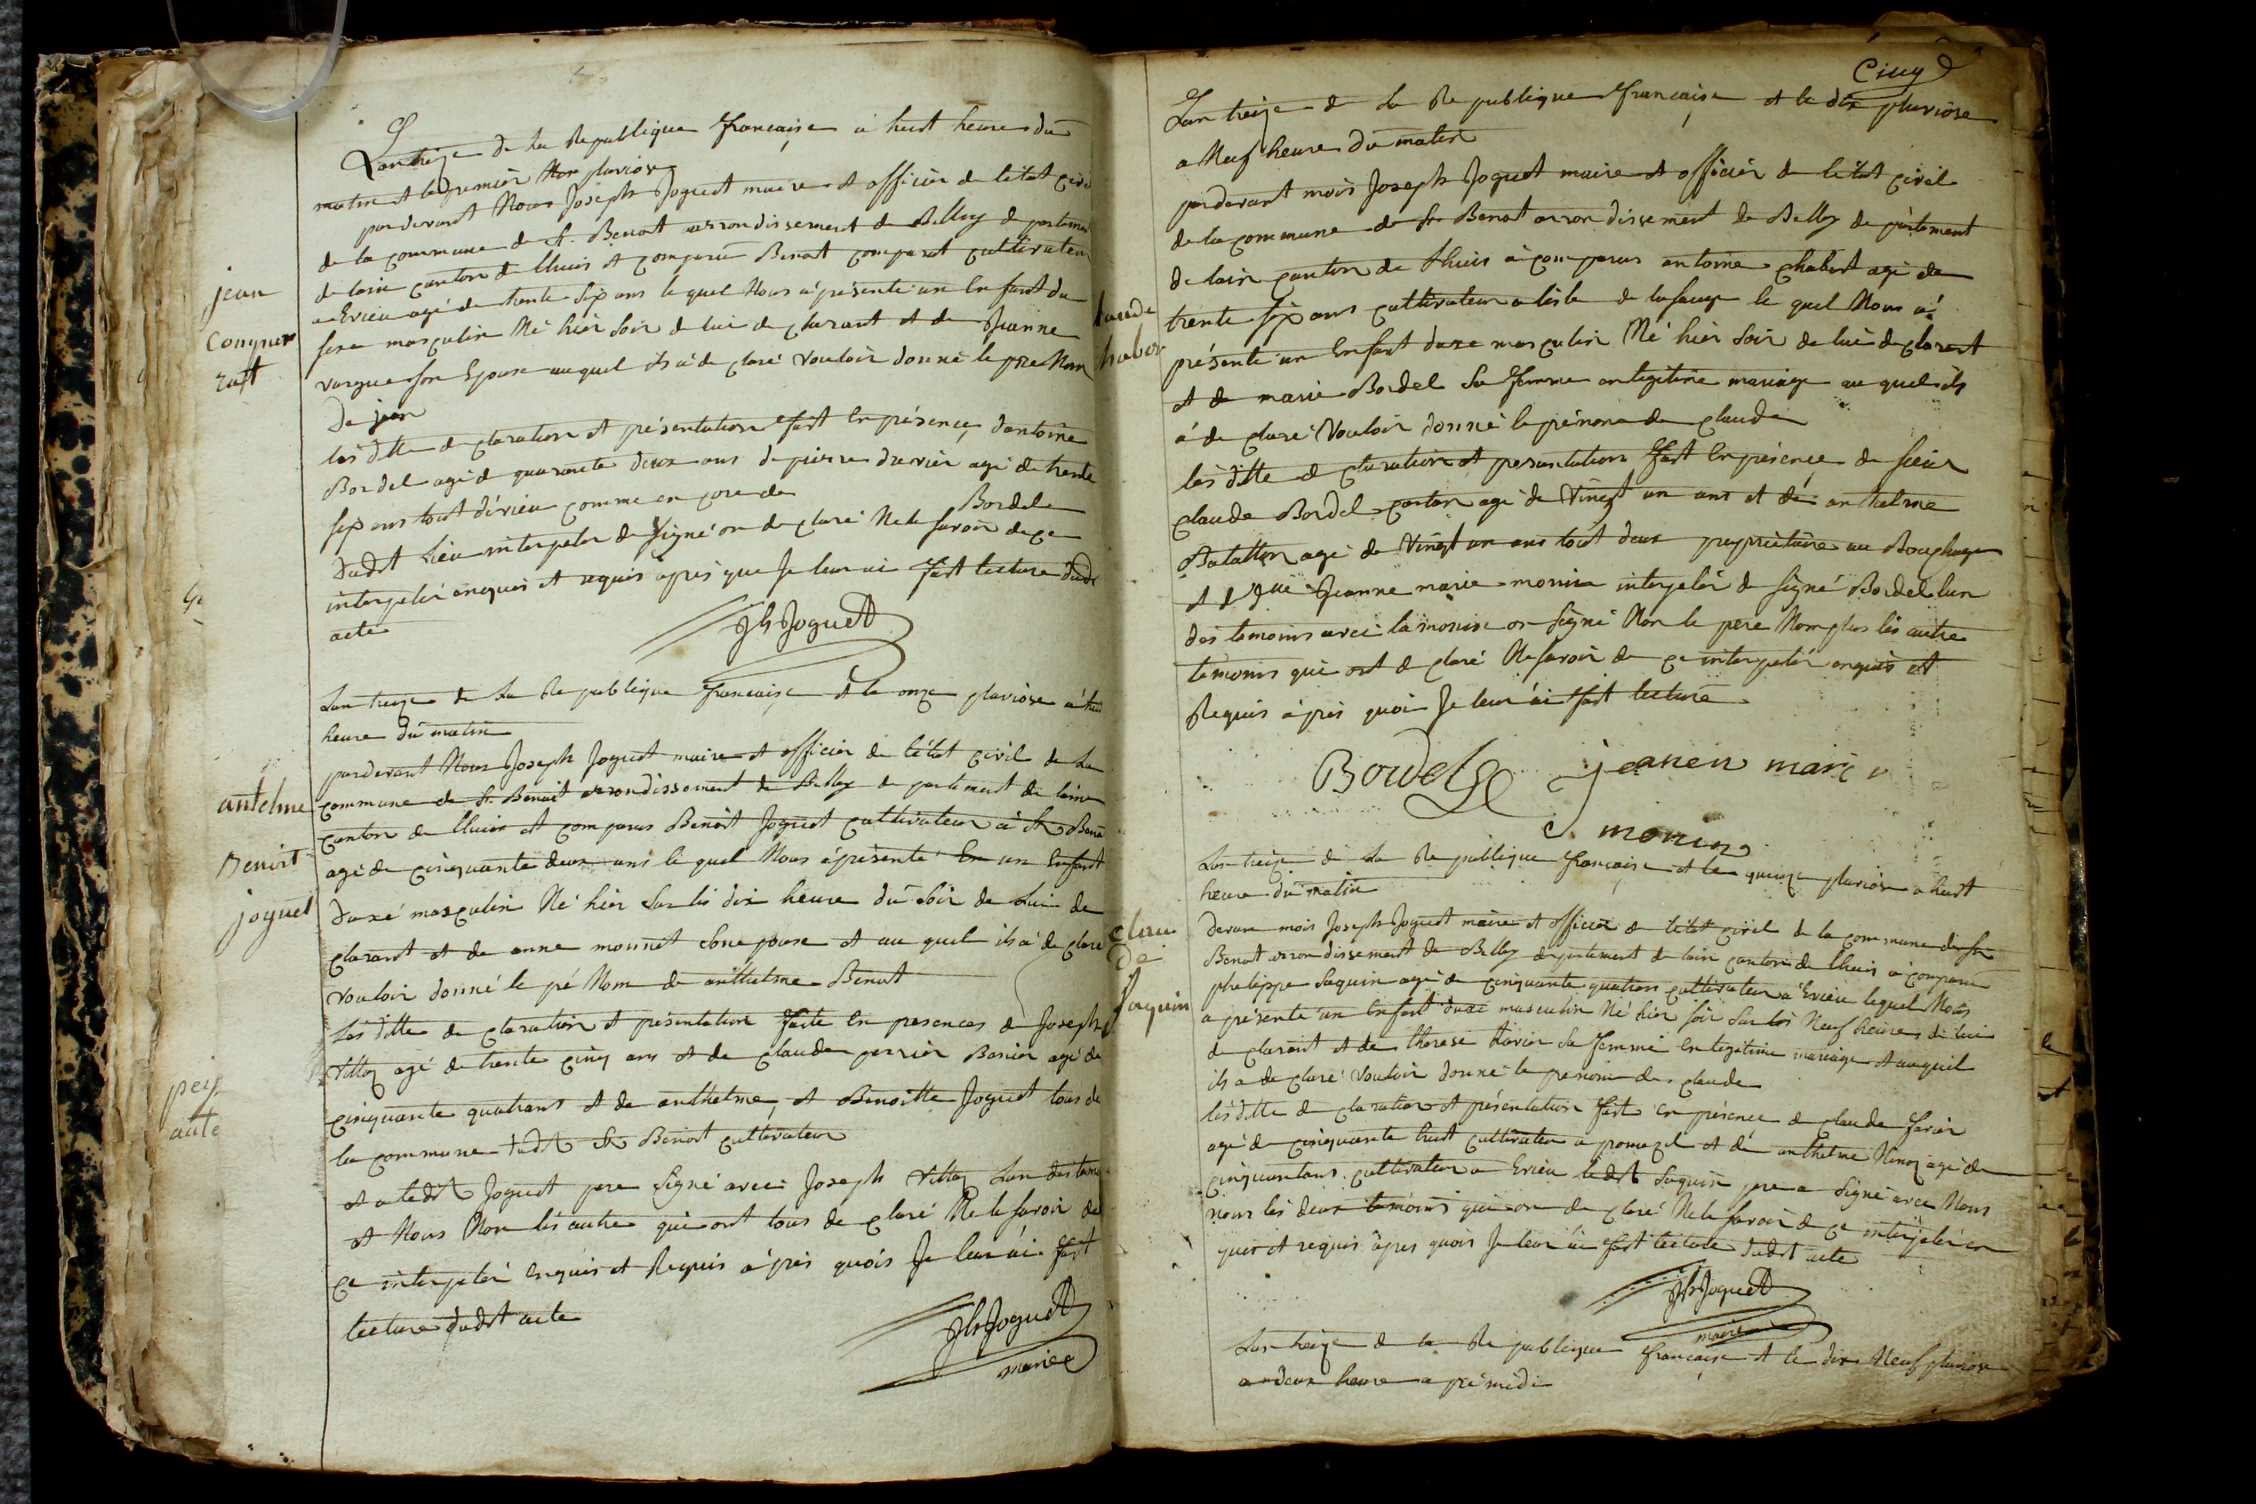 Lan treize de La Republique francaise a huit heure du
matin et le premier pluviose
par devant Nous Joseph Joguet maire et officier de letat civil
de la commune de St. Benoit arrondissement de Belley de partement
de lain canton de lhuis et comparu Benoit comparat cultivateur
a Evieu agé de trente six ans le quel Nous a présenté un Enfant du
sexe masculin Né hier soir de lui de clarant et de Jeanne
son Epouse auquel ils a de claré vouloir donné le pre Nom
De jean
les ditte de claration et présentation fait En présence dantoine
Bordel agé de quarante deux ans de pierre agé de trente
six ans tout dévieu comme
Bordel
Dudit Lieu interpeler de signé on de claré Ne le savoir de ce
interpelér enquis et requis apres que Je leur ai fait lecture dudt
acte
Jh Joguet
jean
antelme
Benoit
joguet
Lan treize de La Re publique francaise et le onze pluviose a huit
heure du matin
par devant Nous Joseph Joguet maire et officier de letat civil de La
commune de St. Benoit arrondissement de Belley de partement de laine
canton de lhuis et comparus Benoit Joguet cultivateur a St Benoi
agé de cinquante deux ans le quel Nous a présenté En un Enfant
Duxé masculin Né hier sur les dix heure du soir de Lui de
clarant et de anne monnet son epouse et au quel ils a de claré
vouloir donné le pé Nom de anthelme Benoit
Les ditte de claration et présentation faite En presences de Joseph
Vittoz agé de trente cinq ans et de claude perrier Benoir agé de
cinquante quatrans et de anthelme, et Benoitte Joguet tous de
la commune dudt St Benoit cultivateur
et a ledit Joguet pere signé avec Joseph Vittoz Lun des temo
et Nous Non les autre qui ont tous de claré Ne le savoir de
ce interpelér enquis et Requis a prés quois Je leur ai fait
lecture dudit acte
Jh Joguet
maire
Cinq
Lan treize de La Re publique francaise et le dix pluviose
a Neuf heure du matin
pardevant mois Joseph Joguet maire et officier de letat civil
de la commune de St Benoit arron dissement de Belley de partement
de lain canton de Lhuis a comparus antoine chabert agé de
trente six ans cultivateur a lisle de le quel Nous á
présenté un Enfant duxe masculin Né hier soir de lui de clarant
et de marie Bordel sa femme en legitime mariage au quel ils
á de claré Vouloir donné le prénom de claude
les ditte de claration et presantation fait En présence de sieur
claude Bordel agé de Vingt un ans et dé anthelme
agé de Vingt un ans tout deux propriétaire au Bouchage
et Jeanne marie monin interpelér de signé Bordel lun
des temoins avec la monin on signé Non le pere Nom plus les autre
témoins qui ont de claré Ne savoir de ce interpelér enquis et
Requis a prés quoi Je leur ai fait lecture
Bordel jeanen marie
monin
claude
Lan treize de La Re publique francaise et le quinze pluviose a huit
heure du matin
Devan mois Joseph Joguet maire et officier de letat civil de la commune de St
Benoit arron dissement de Belley departement de lain canton de lhuis a comparu
phelippe Saquin agé de cinquante quatrans cultivateur a Evieu lequel Nous
a présenté un Enfant duxé masculin Né hier soir sur les Neuf heures de lui
de clarant et de therese sa femme En legitime mariage et auquel
ils a de claré vouloir donné le prenom de claude
les ditte de claration et présentation fait en présence de claude favier
agé de cinquante huit cultivateur a et dé anthelme agé de
cinquantans cultivateur a Evieu ledit Saquin pere a signé avec Nous
nous les deux temoins qui on de claré Ne le savoir de ce interpelér en
quis et requis âpres quois Je leur ai fait lecture dudit acte
Jh Joguet
maire
Lan treize de la Re publique francaise et le dix Neuf pluviose
a deux heure a pré midi